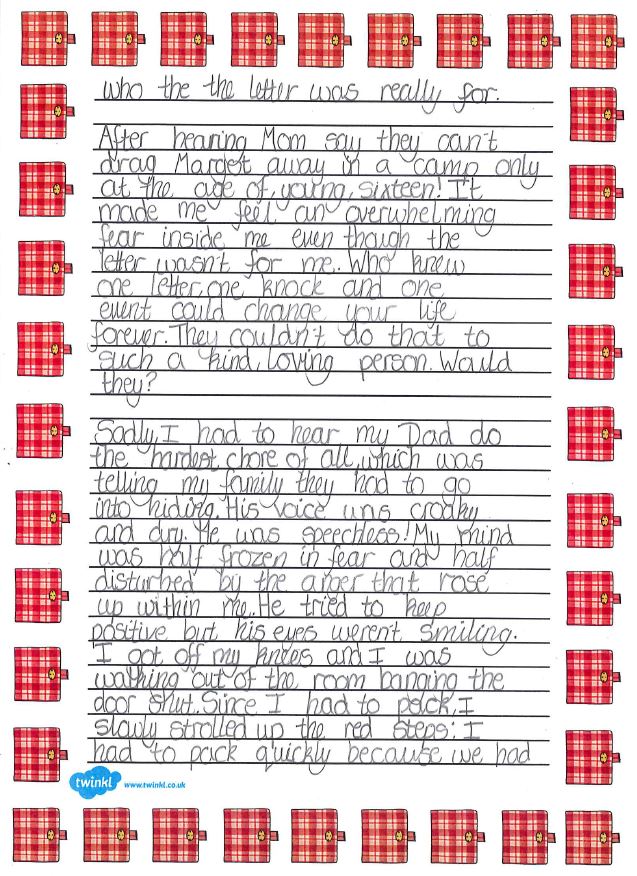 who the the letter was really for.
After hearing Mom say they can't
drag Marget away in a camp only
at the age of, young, sixteen! It
made me feel an overwhelming
fear inside me even though the
letter wasn't for me. Who knew
one letter, one knock and one
event could change your life
forever. They couldn't do that to
such a kind, loving person. Would
they?
Sadly, I had to hear my Dad do
the hardest chore of all, which was
telling my family they had to go
into hiding. His voice was croaky
and dry. He was speechless! My mind
was half frozen in fear and half
disturbed by the anger that rose
up within me. He tried to keep
positive but his eyes weren't smiling.
I got off my knees and I was
walking out of the room banging the
door shut. Since I had to pack, I
slowly strolled up the red steps: I
had to pack quickly because we had
twinkl www.twinkl.co.uk